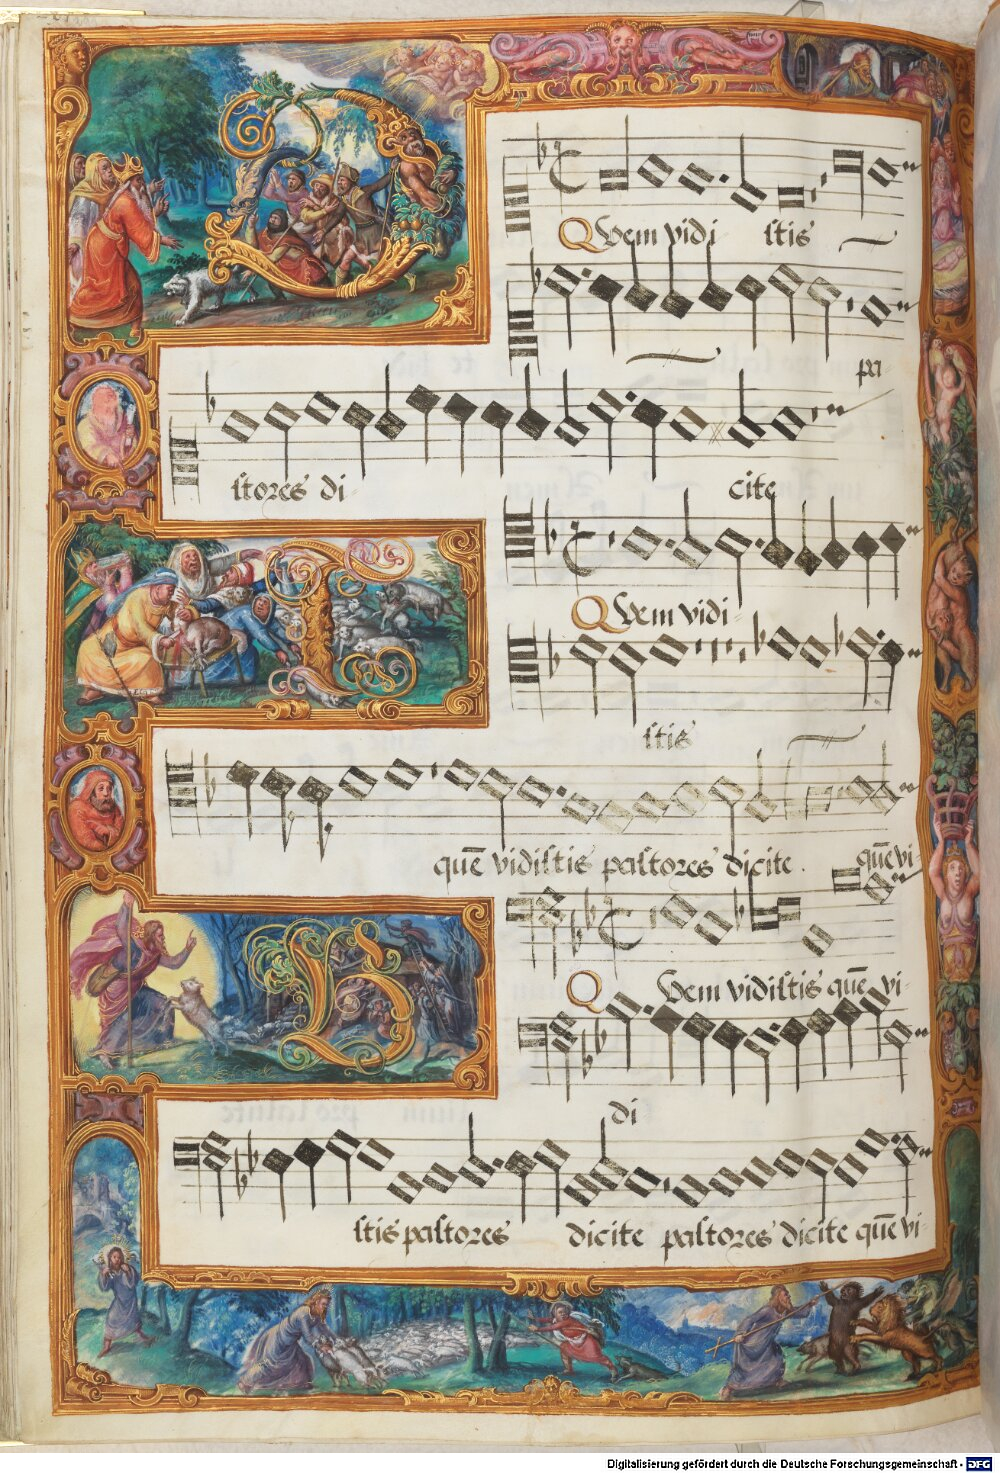 Quem vidi stis
pa-
stores di- cite
Quem vidi-
stis
quē vidistis pastores dicite. quē vi-
Quem vidistis quē vi-
di
stis pastores dicite pastores dicite quē vi-
Digitalisierung gefördert durch die Deutsche Forschungsgemeinschaft - DFG